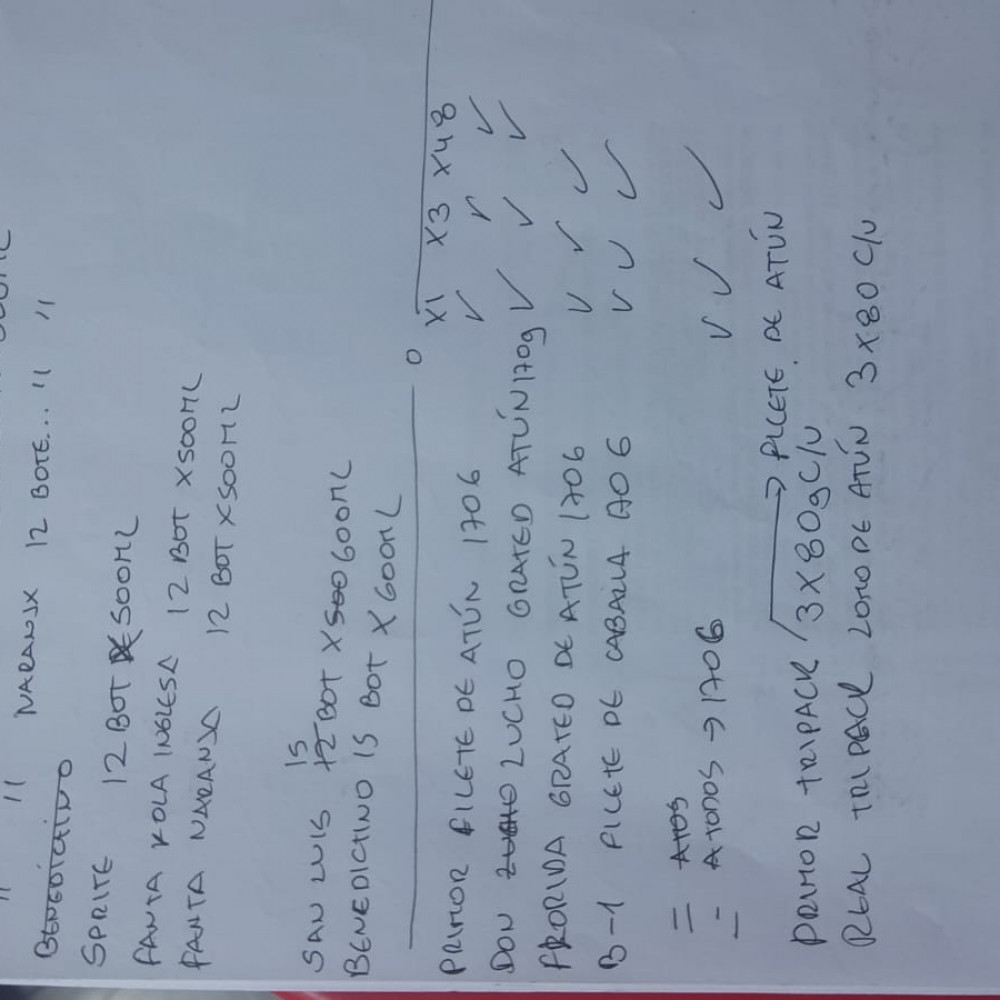 " " NARANJX 12 BOTE... " "
BENEDICTINO
SPRITE 12 BOT X500ML
FANTA KOLA INGLESA 12 BOT X500ML
FANTA NARANJA 12 BOT X500ML
SAN LUIS 12 15 BOT X500 600ML
BENEDICTINO 15 BOT X 600ML
X1 X3 X48
PRIMOR FILETE DE ATÚN 170G ✓ ✓ ✓
DON LUCHO LUCHO GRATED ATÚN 170g ✓ ✓ ✓
FRORIDA GRATED DE ATÚN 170G ✓ ✓ ✓
B-1 FILETE DE CABALLA 170G ✓ ✓ ✓
= ATOS
- ATODOS → 170G ✓ ✓ ✓
PRIMOR TRIPACK / 3X80g C/U → FILETE DE ATÚN
REAL TRIPACK LOMO DE ATÚN 3X80 C/U